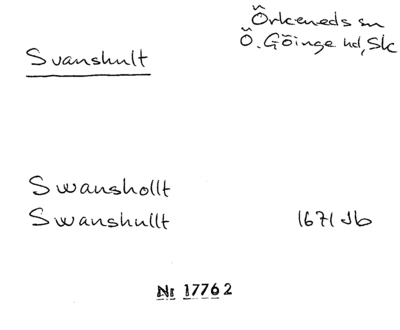 Örkeneds sn
Ö. Göinge hd, Sk
Svanshult
Swanshollt
Swanshullt 1671 Jb
Nr 17762